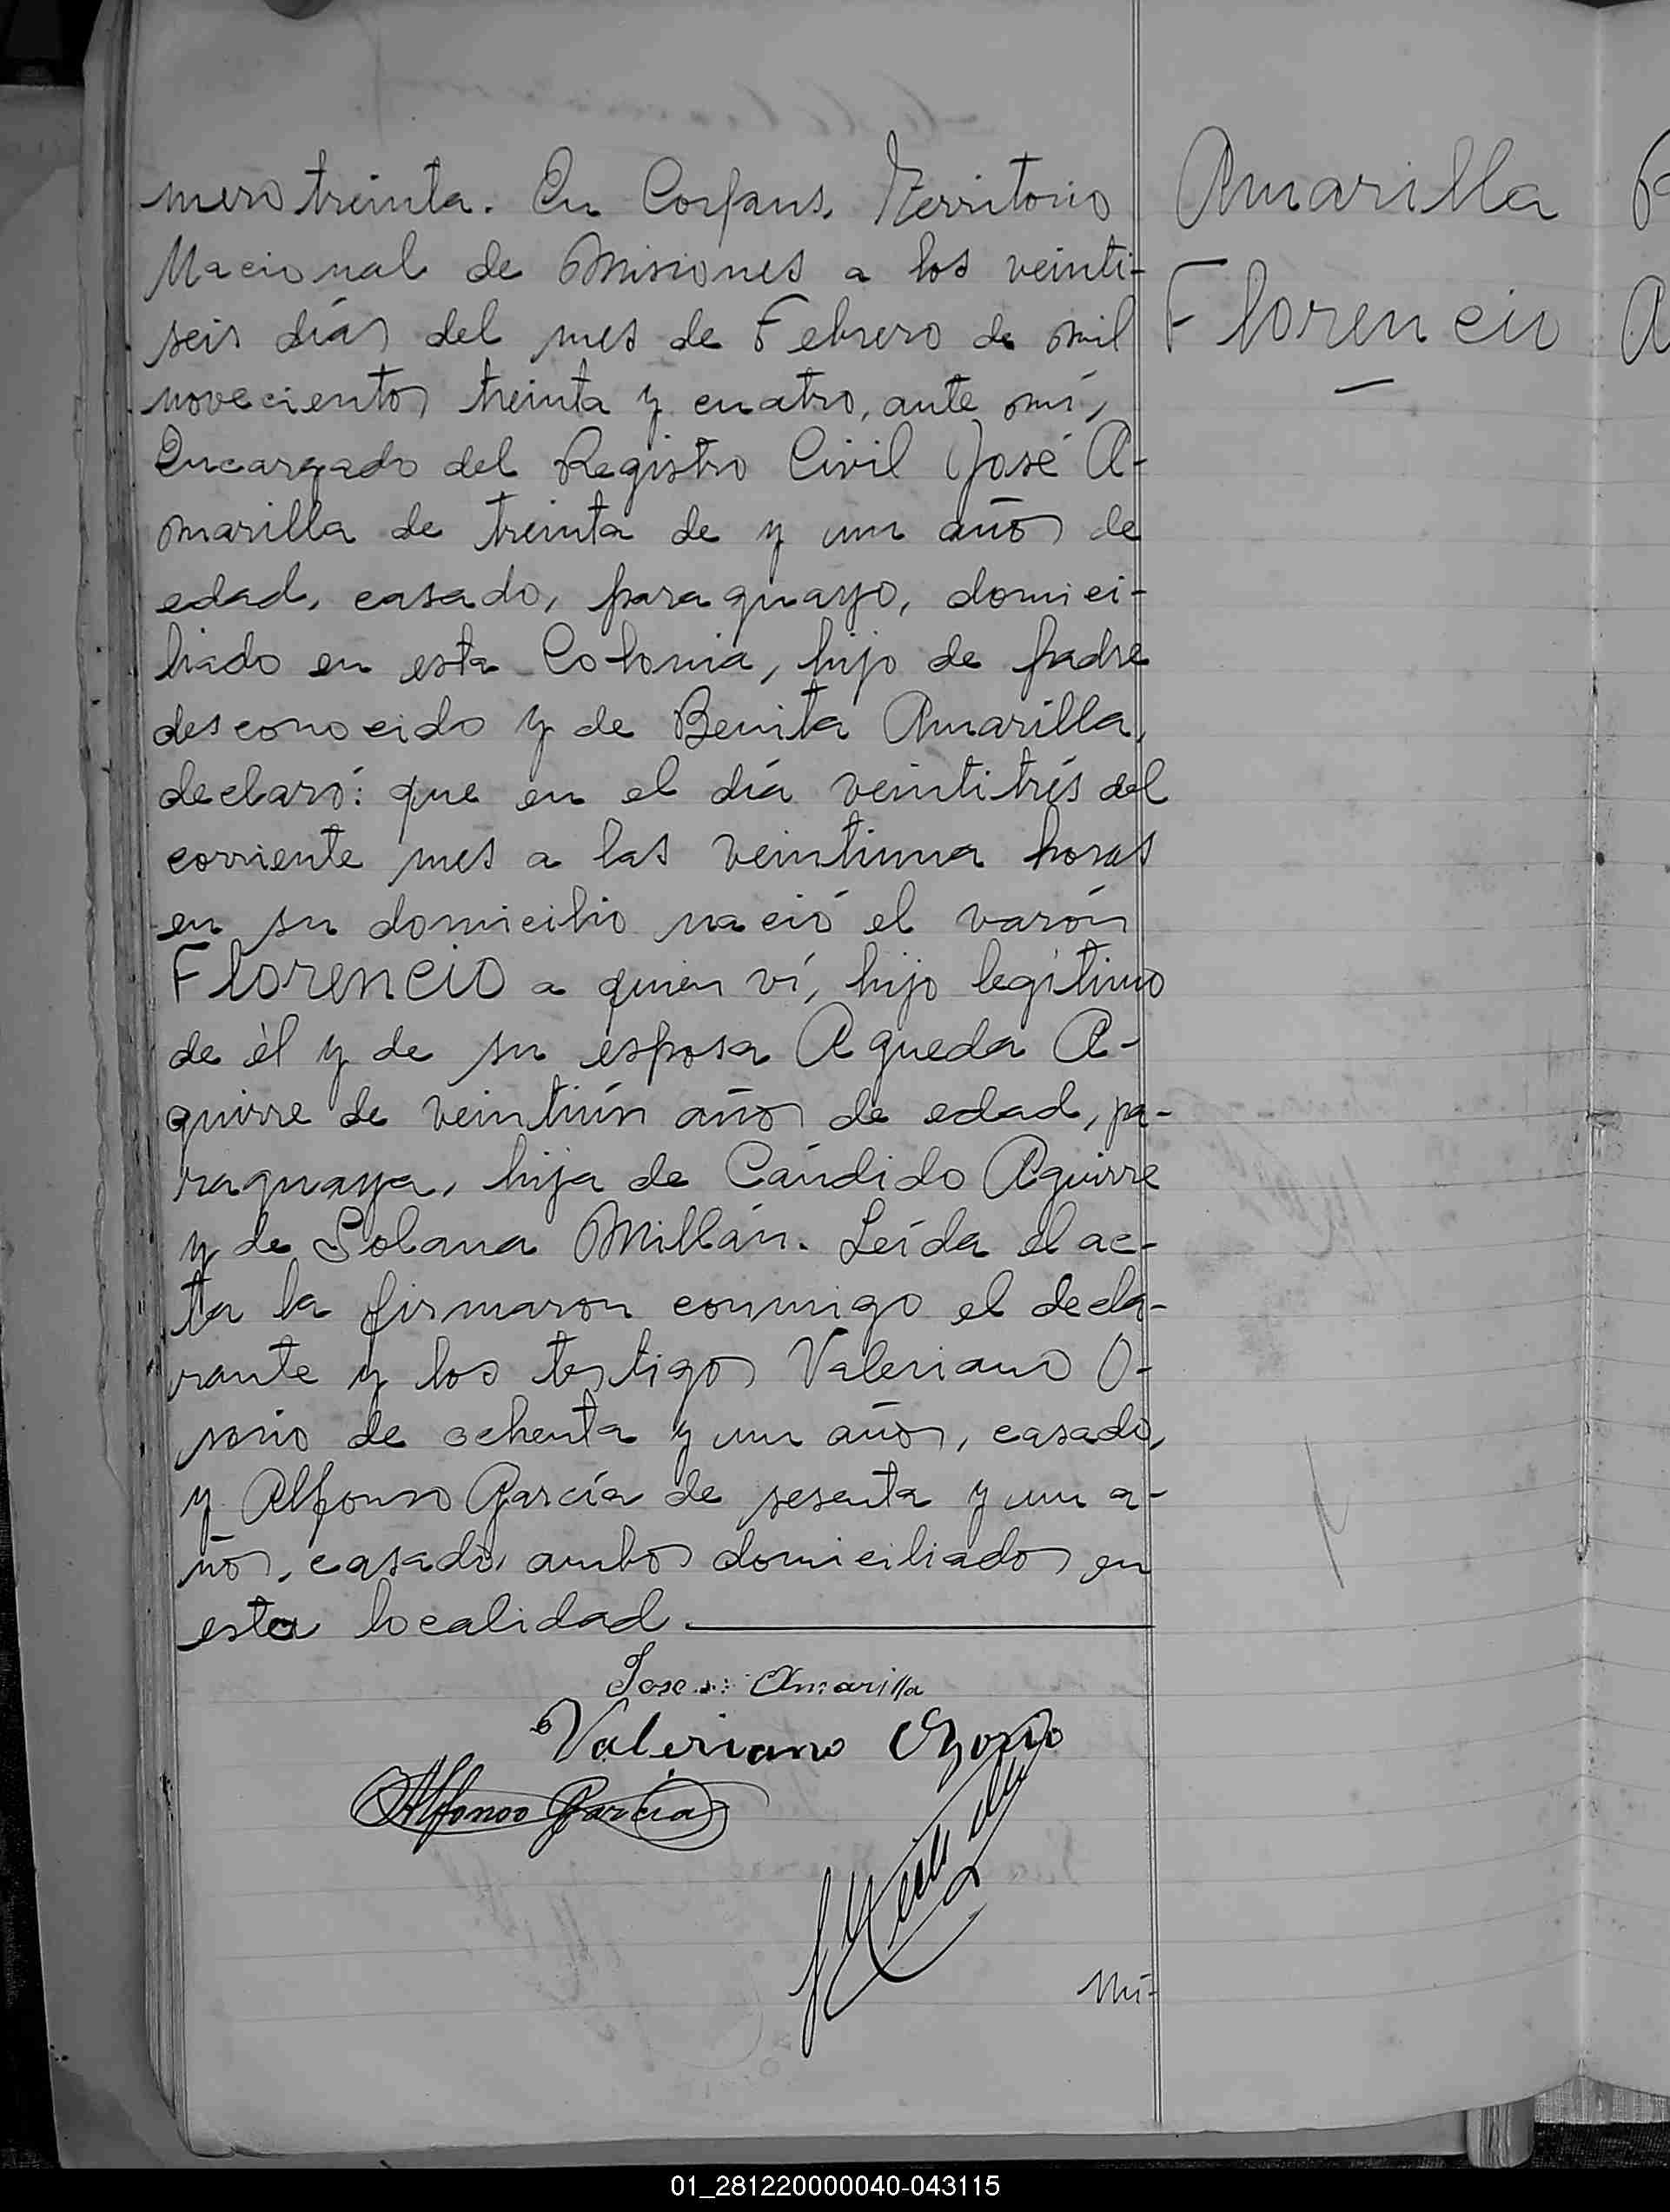 mero treinta. En Corpus, Territorio
Nacional de Misiones a los veinti-
seis días del mes de Febrero de mil
novecientos treinta y cuatro, ante mí,
Encargado del Registro Civil José A-
marilla de treinta de y un años de
edad, casado, paraguayo, domici-
liado en esta Colonia, hijo de padre
desconocido y de Benita Amarilla,
declaró: que en el día veintitrés del
corriente mes a las veintiuna horas
en su domicilio nació el varón
Florencio a quien ví, hijo legítimo
de èl y de su esposa Agueda A-
guirre de veintiún años de edad, pa-
raguaya, hija de Cándido Aguirre
y de Solana Millán. Leída el ac-
ta la firmaron conmigo el decla-
rante y los testigos Valeriano O-
sorio de ochenta y un años, casado,
y Alfonso García de sesenta y un a-
ños, casado, ambos domiciliados en
esta localidad
Jose Amarilla
Valeriano Ozorio
Alfonso Garcia
Nú-
Amarilla
Florencio
01_281220000040-043115